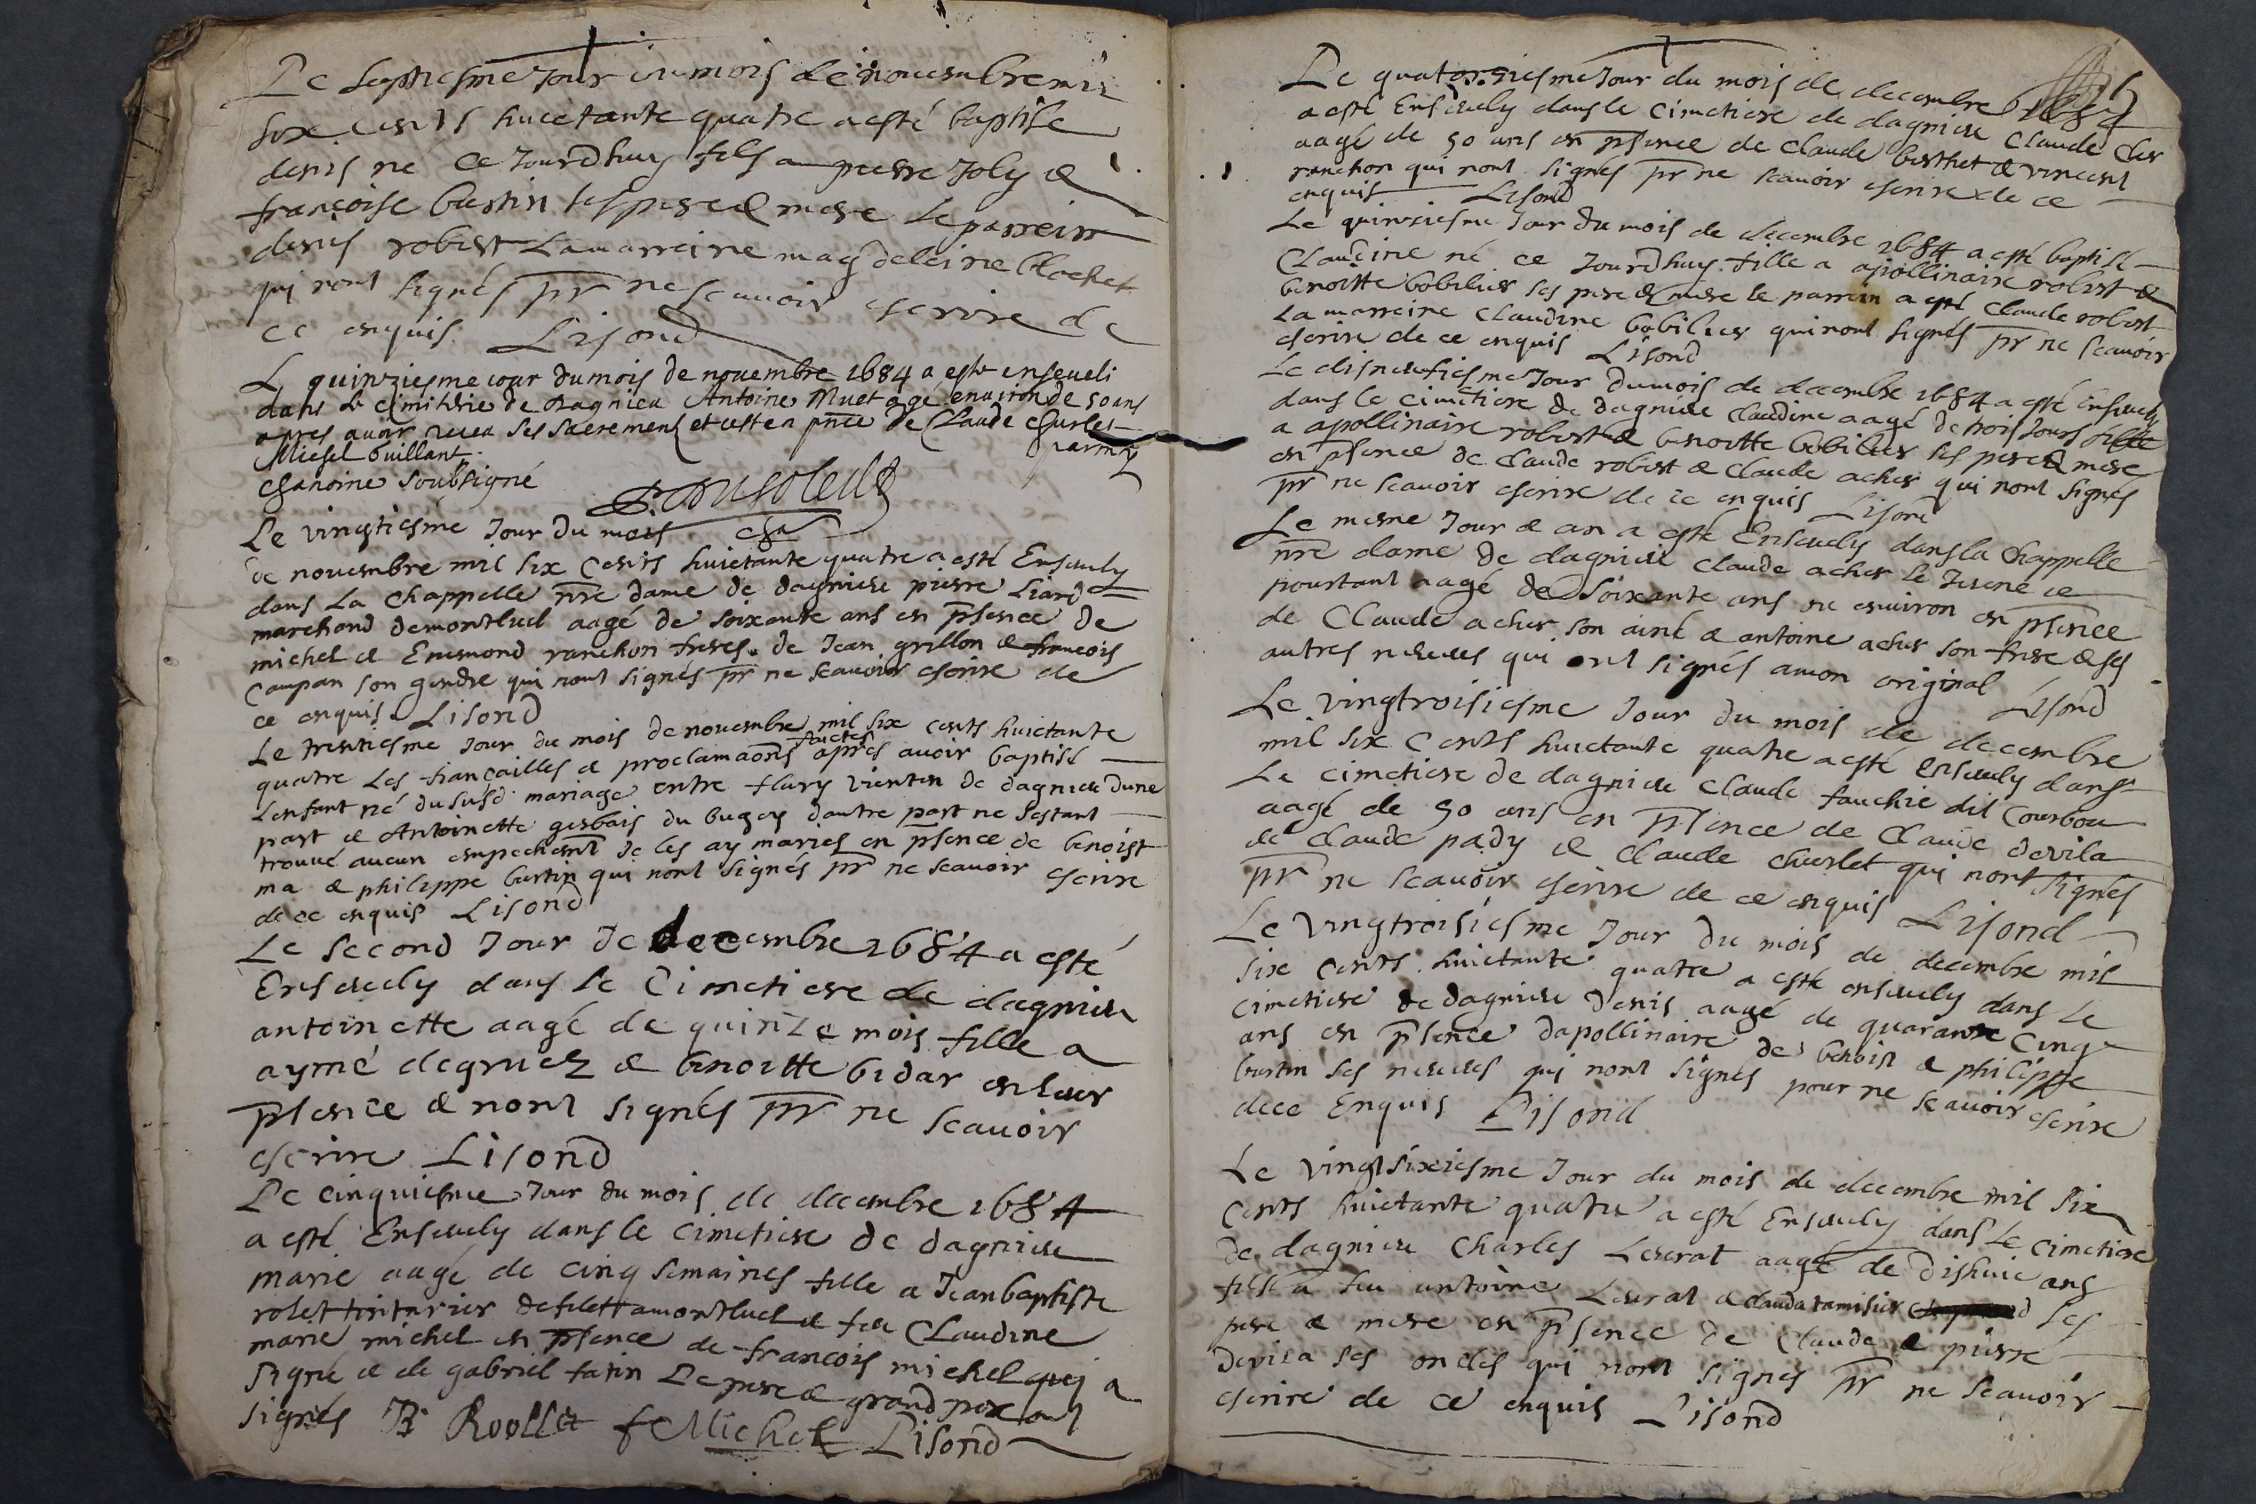 Le septiesme Jour du mois de novembre mil
six cents huictante quatre a esté baptisé
denis né ce Jourdhuy fils a pierre Joly &
françoise bertin ses pere & mere Le parrein
denis robert La marreine magdeleine
qui nont signés pr ne scavoir escrire de
ce enquis Lisond
Le quinziesme iour du mois de novembre 1684 a este enseveli
dans le cimitiere de dagnieu Antoine Muet agé environ de 50 ans
apres avoir receu ses sacremens et cest en pnce de Claude Charles
Michel Guillant parmy
chanoine soubsigné
cha
Le vingtiesme Jour du mois
de novembre mil six cents huictante quatre a esté Ensevely
dans La Chappelle nre dame de dagnieu pierre Liard
marchand de montluel aagé de soixante ans en psence de
michel & Enemond ranchon freres de Jean grillon & francois
Campan son gendre qui nont signés pr ne scavoir escrire de
ce enquis Lisond
Le trentiesme Jour du mois de novembre mil six cents huictante
quatre Les fiançailles & proclamaons faictes apres avoir baptisé
Lenfant né du susd mariage entre flury vientin de dagnieu dune
part & Antoinette gerbais du bugey dautre part ne sestant
trouvé aucun empechemt Je les ay mariés en psence de benoist
ma & philippe bertin qui nont signés pr ne scavoir escrire
de ce enquis Lisond
Le second Jour de decembre 1684 a esté
Ensevely dans le Cimetiere de dagnieu
antoinette aagé de quinze mois fille a
aymé degruez & benoitte bidar en leur
psence & nont signés pr ne scavoir
escrire Lisond
Le cinquiesme Jour du mois de decembre 1684
a esté Ensevely dans le cimetiere de dagnieu
marie aagé de cinq semaines fille a Jean baptiste
rolet tinturier de filet a montluel & feu Claudine
marie michel en psence de francois michel qui a
signé & de gabriel fatin Le pere & grand pere ont
signés B Roollet f Michel Lisond
Le quatorziesme Jour du mois de decembre 1684
a esté Ensevely dans le cimetiere de dagnieu Claude
aagé de 50 ans en psence de claude berthet & vincent
ranchon qui nont signés pr ne scavoir escrire de ce
enquis Lisond
Le quinziesme Jour du mois de decembre 1684 a esté baptisé
Claudine né ce Jourdhuy fille a apollinaire robert &
benoitte bobilier ses pere & mere le parrein a esté Claude robert
La marreine Claudine bobilier qui nont signés pr ne scavoir
escrire de ce enquis Lisond
Le disneufiesme Jour du mois de decembre 1684 a esté ensevely
dans le cimetiere de dagnieu Claudine aagé de trois Jours fille
a apollinaire robert & benoitte bobilier ses pere & mere
en psence de Claude robert & Claude acher qui nont signés
pr ne scavoir escrire de ce enquis Lisond
Le mesme Jour & an a esté Ensevely dans la chappelle
nre dame de dagnieu Claude acher le Jeune ce
pourtant aagé de soixante ans ou environ en psence
de Claude acher son ainé & antoine acher son frere & ses
autres neveus qui ont signés a mon original Lisond
Le vingtroisiesme Jour du mois de decembre
mil six cents huictante quatre a esté ensevely dans
Le cimetiere de dagnieu Claude fauchie dit Courbou
aagé de 50 ans en psence de Claude devila
de Claude pady & Claude churlet qui nont signés
pr ne scavoir escrire de ce enquis Lisond
Le vingtroisiesme Jour du mois de decembre mil
six cents huictante quatre a esté ensevely dans le
cimetiere de dagnieu denis aagé de quarante cinq
ans en psence dapollinaire de benoist & philippe
bertin ses neveus qui nont signés pour ne scavoir escrire
de ce Enquis Lisond
Le vingt sixiesme Jour du mois de decembre mil six
cents huictante quatre a esté Ensevely dans le cimetiere
de dagnieu Charles Leurat aagé de dishuic ans
fils a feu antoine Leurat & clauda tamisier ses
pere & mere en psence de Claude & pierre
devila ses oncles qui nont signés pr ne scavoir
escrire de ce enquis Lisond